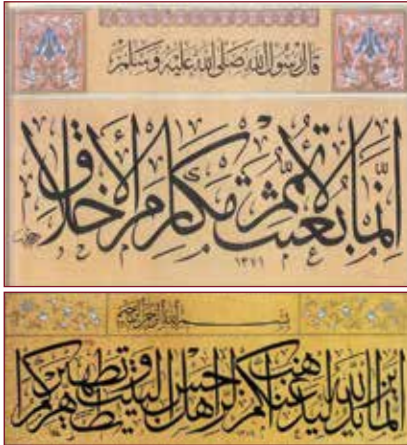 قال رسول الله صلى الله عليه وسلم
إنما بعثت لأتمم مكارم الأخلاق
١٣٧١
بسم الله الرحمن الرحيم
إنما يريد الله ليذهب عنكم الرجس أهل البيت ويطهركم تطهيرا